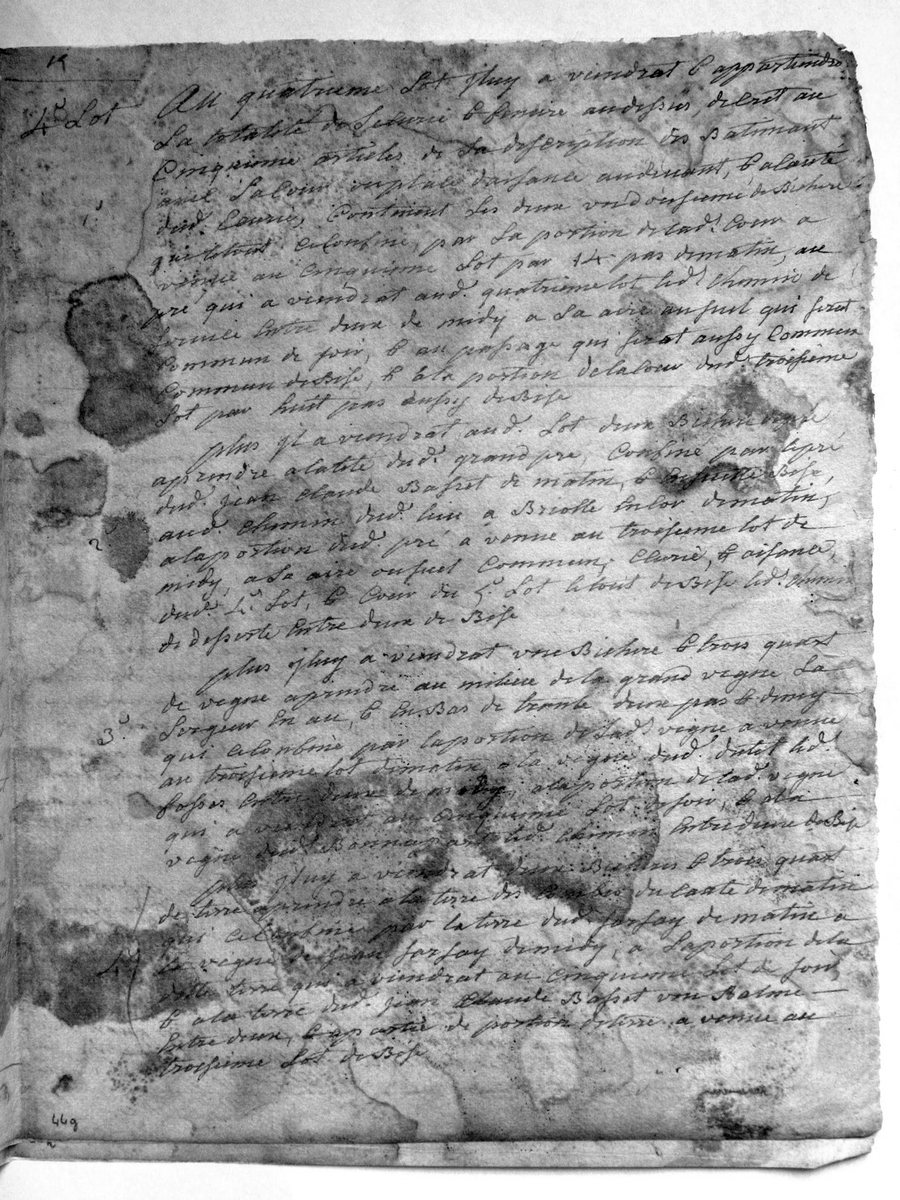 19
4.e Lot
Au quatrieme Lot Jluy a viendrat & appartiendra
La totalité du Lecurie & feniere audessus, decrit au
Cinquieme articles de La description des Batimant
avec La Cour ou place daisance audevant, & alauté
dud. Ecurie, Contenant Les deux de Bichere
1.
qui letout Celonfine, par La portion de lad. Cour a
venue au Cinquieme Lot par 14 pas de matin, au
pré qui a viendrat aud. quatrieme lot led. Chemin de
Entre deux de midy a La aire ou suel qui serat
Commun de soir, & au passage qui serat aussy Commun
Commun de Bise, & ala portion delacour dud. troisieme
Lot par huit pas aussy de Bise
plus Jl a viendrat aud. Lot deux Bichere
aprendre alatete dud. grand pré, Confiné par lepré
dud. Jean Claude Basset de matin, & Bise,
2
aud. Chemin dud. a Briolle de matin,
alaportion dud. pré a venue au troisieme lot de
midy, a La aire ou suel Commun, Ecurie, & aisance,
dud. 4.e Lot, & Cour du 5.e Lot letout de Bise led. Chemin
de desserte Entre deux de Bise
plus Jluy a viendrat une Bichere & trois quart
de vigne aprendre au milieu de la grand vigne La
Largeur En au, & En Bas de trente deux pas & demy
3.
qui Celonfine par laportion de Lad. vigne a venue
au troisieme lot de matin a la vigne dud. led.
fosses Entre deux de midy, alaportion de lad. vigne
qui a viendrat au Cinquieme Lot de soir, & ala
vigne dud. led. Chemin Entre deux de Bise
plus Jluy a viendrat deux Bichere & trois quart
de terre aprendre a la terre des du Cauté de matin
qui Celonfine par la terre dud. farsay de matin a
4
la vigne farsay de midy, a Laportion de la
ditte terre qui a viendrat au Cinquieme Lot de soir
& ala terre dud. Jean Claude Basset une Balme
Entre deux, & partie de portion de terre a venue au
troisieme Lot de Bise
449